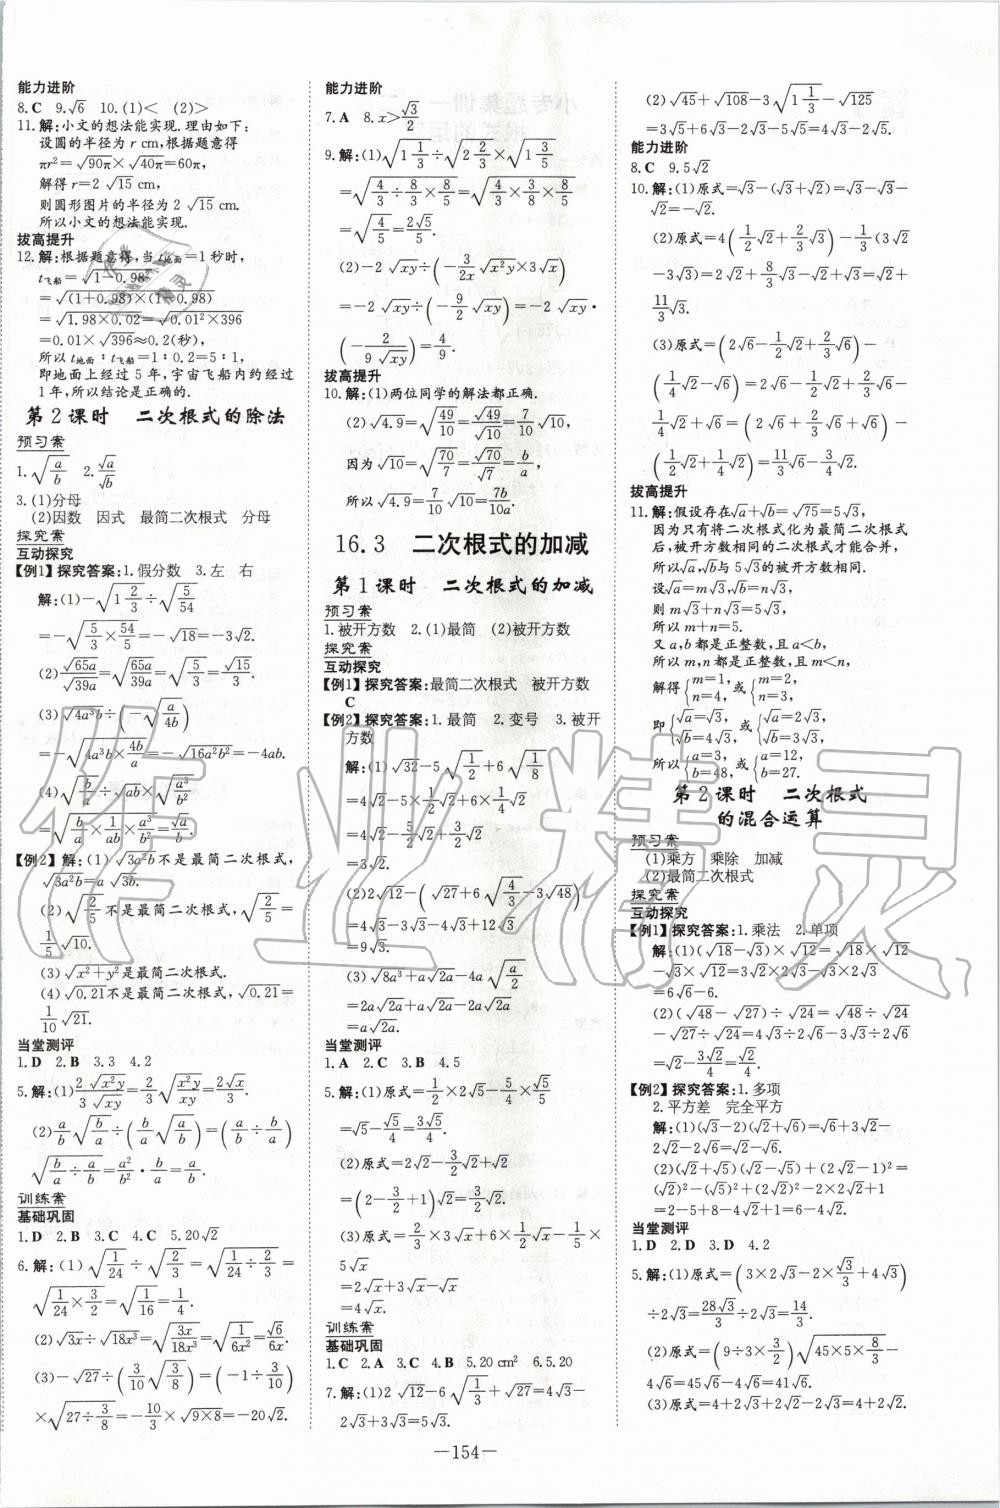 能力进阶
8.C 9.√6 10.(1)< (2)>
11.解:小文的想法能实现.理由如下:
设圆的半径为 r cm,根据题意得
πr²=√90π×√40π=60π,
解得 r=2√15 cm,
则圆形图片的半径为 2√15 cm.
所以小文的想法能实现.
拔高提升
12.解:根据题意得,当 t地面=1秒时,
t飞船=√1-0.98²
=√(1+0.98)×(1-0.98)
=√1.98×0.02=√0.01²×396
=0.01×√396≈0.2(秒),
所以 t地面∶t飞船=1∶0.2=5∶1,
即地面上经过 5 年,宇宙飞船内约经过
1年,所以结论是正确的.
第2课时 二次根式的除法
预习案
1.√(a/b) 2.√a/√b
3.(1)分母
(2)因数 因式 最简二次根式 分母
探究案
互动探究
【例1】探究答案:1.假分数 3.左 右
解:(1)-√(1 2/3)÷√(5/54)
=-√(5/3×54/5)=-√18=-3√2.
(2)√65a/√39a=√(65a/39a)=√(5/3)=√15/3.
(3)√4a³b÷(-√(a/4b))
=-√(4a³b×4b/a)=-√16a²b²=-4ab.
(4)√(b/a)÷√ab×√(a³/b²)
=√(b/a×1/ab×a³/b²)=√a/b.
【例2】解:(1)√3a²b不是最简二次根式,
√3a²b=a√3b.
(2)√(2/5)不是最简二次根式,√(2/5)=
1/5√10.
(3)√x²+y²是最简二次根式.
(4)√0.21不是最简二次根式,√0.21=
1/10√21.
当堂测评
1.D 2.B 3.3 4.2
5.解:(1)2/3 √x²y/√xy=2/3√(x²y/xy)=2√x/3.
(2)a/b√(b/a)÷(b/a√(a/b))=(a/b÷b/a)
√(b/a÷a/b)=a²/b²·b/a=a/b.
训练案
基础巩固
1.D 2.B 3.C 4.C 5.20√2
6.解:(1)√(1/24)÷√(2/3)=√(1/24÷2/3)=
√(1/24×3/2)=√(1/16)=1/4.
(2)√3x÷√18x³=√(3x/18x³)=√(1/6x²)=√6/6x.
(3)-√27÷(3/10√(3/8))=(-1÷3/10)
×√(27÷3/8)=-10/3×√(9×8)=-20√2.
能力进阶
7.A 8.x>√3/2
9.解:(1)√(1 1/3)÷√(2 2/3)×√(1 3/5)
=√(4/3÷8/3×8/5)=√(4/3×3/8×8/5)
=√(4/5)=2√5/5.
(2)-2√xy÷(-3/2x√x²y×3√x)
=-2√xy÷(-9/2√xy)=-2√xy·
(-2/9√xy)=4/9.
拔高提升
10.解:(1)两位同学的解法都正确.
(2)√4.9=√(49/10)=√49/√10=7/10√10,
因为√10=√(70/7)=√70/√7=b/a,
所以√4.9=7/10√10=7b/10a.
16.3 二次根式的加减
第1课时 二次根式的加减
预习案
1.被开方数 2.(1)最简 (2)被开方数
探究案
互动探究
【例1】探究答案:最简二次根式 被开方数
C
【例2】探究答案:1.最简 2.变号 3.被开
方数
解:(1)√32-5√(1/2)+6√(1/8)
=4√2-5×1/2√2+6×1/4√2
=4√2-5/2√2+3/2√2
=3√2.
(2)2√12-(√27+6√(4/3)-3√48)
=4√3-3√3-4√3+12√3
=9√3.
(3)√8a³+a√2a-4a√(a/2)
=2a√2a+a√2a-2a√2a
=a√2a.
当堂测评
1.A 2.C 3.B 4.5
5.解:(1)原式=1/2×2√5-5/4×√5/5
=√5-√5/4=3√5/4.
(2)原式=2√2-3/2√2+√2
=(2-3/2+1)√2=3/2√2.
(3)原式=2/3×3√x+6×1/2√x-1/5×
5√x
=2√x+3√x-√x
=4√x.
训练案
基础巩固
1.C 2.A 3.C 4.B 5.20 cm² 6.5.20
7.解:(1)2√12-6√(1/3)+√27=4√3-
2√3+3√3=5√3.
(2)√45+√108-3√(1 1/3)-√125
=3√5+6√3-2√3-5√5=4√3-2√5.
能力进阶
8.C 9.5√2
10.解:(1)原式=√3-(√3+√2)=√3-√3-
√2=-√2.
(2)原式=4(1/2√2+2/3√3)-1/3(3√2
-√3)=2√2+8/3√3-√2+1/3√3=√2+
11/3√3.
(3)原式=(2√6-1/2√2+1/3√6)
-(1/4√2-√6)=2√6-1/2√2+1/3√6-
1/4√2+√6=(2+1/3+1)√6-(1/2+
1/4)√2=11/3√6-3/4√2.
拔高提升
11.解:假设存在√a+√b=√75=5√3,
因为只有将二次根式化为最简二次根式
后,被开方数相同的二次根式才能合并,
所以√a,√b与5√3的被开方数相同.
设√a=m√3,√b=n√3,
则 m√3+n√3=5√3,
所以 m+n=5.
又 a,b都是正整数,且a<b,
所以 m,n都是正整数,且m<n,
解得{m=1,n=4,或{m=2,n=3,
即{√a=√3,√b=4√3,或{√a=2√3,√b=3√3,
所以{a=3,b=48,或{a=12,b=27.
第2课时 二次根式
的混合运算
预习案
(1)乘方 乘除 加减
(2)最简二次根式
探究案
互动探究
【例1】探究答案:1.乘法 2.单项
解:(1)(√18-√3)×√12=√18×√12
-√3×√12=3√2×2√3-√3×2√3=
6√6-6.
(2)(√48-√27)÷√24=√48÷√24
-√27÷√24=4√3÷2√6-3√3÷2√6
=√2-3√2/4=√2/4.
【例2】探究答案:1.多项
2.平方差 完全平方
解:(1)(√3-2)(√2+√6)=√6+3√2-
2√2-2√6=√2-√6.
(2)(√2+√5)(√2-√5)+(√2-1)²=
(√2)²-(√5)²+(√2)²-2×√2×1+1
=2-5+2-2√2+1=-2√2.
当堂测评
1.D 2.D 3.D 4.2
5.解:(1)原式=(3×2√3-2×√3/3+4√3)
÷2√3=28√3/3÷2√3=14/3.
(2)原式=(9÷3×1/2)√(45×5×8/3)-
4√6=45√6-4√6=41√6.
(3)原式=4+2√2+3√2+3=7+5√2.
—154—
作业精灵